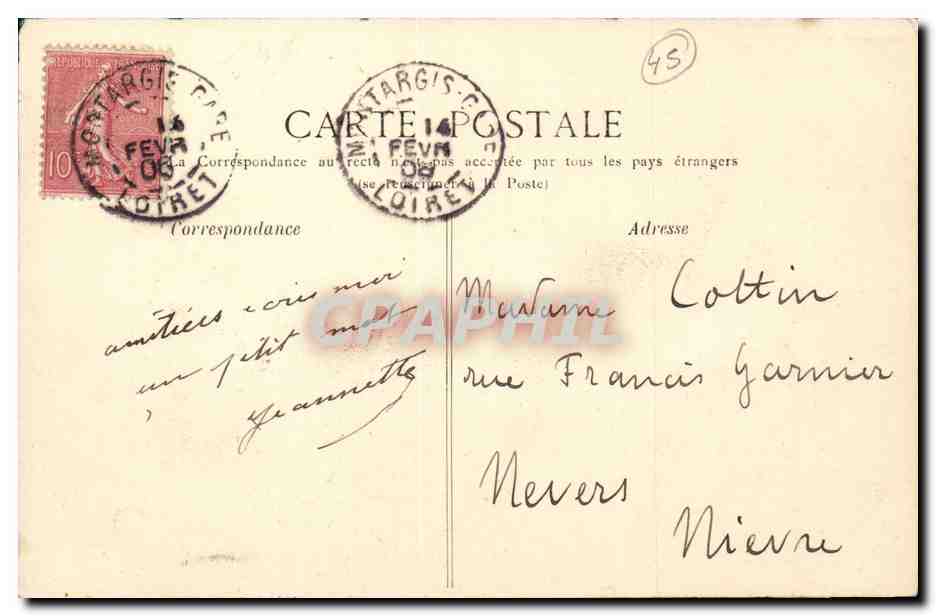 45
REPUBLIQUE FRANCAISE
10
MONTARGIS-GARE
14
FEVR
06
LOIRET
MONTARGIS-GARE
14
FEVR
06
LOIRET
CARTE POSTALE
La Correspondance au recto n'est pas acceptée par tous les pays étrangers
(se renseigner à la Poste)
Correspondance
Adresse
amitiés ecris moi
un petit mot
Jeannette
Madame Cottin
rue Francis Garnier
Nevers
Nièvre
CPAPHIL